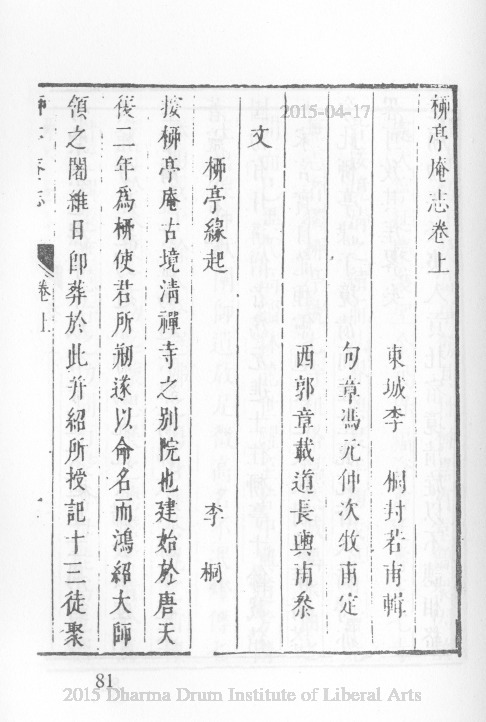 栁亭庵志卷上
東城李　桐封若甫輯
句章馮元仲次牧甫定
西郭章載道長輿甫叅
文
栁亭緣起　李　桐
按栁亭庵古境清禪寺之别院也建始於唐天
復二年爲栁使君所剏遂以命名而鴻紹大師
領之闍維日即葬於此并紹所授記十三徒聚
卷上
81
2015-04-17
2015 Dharma Drum Institute of Liberal Arts